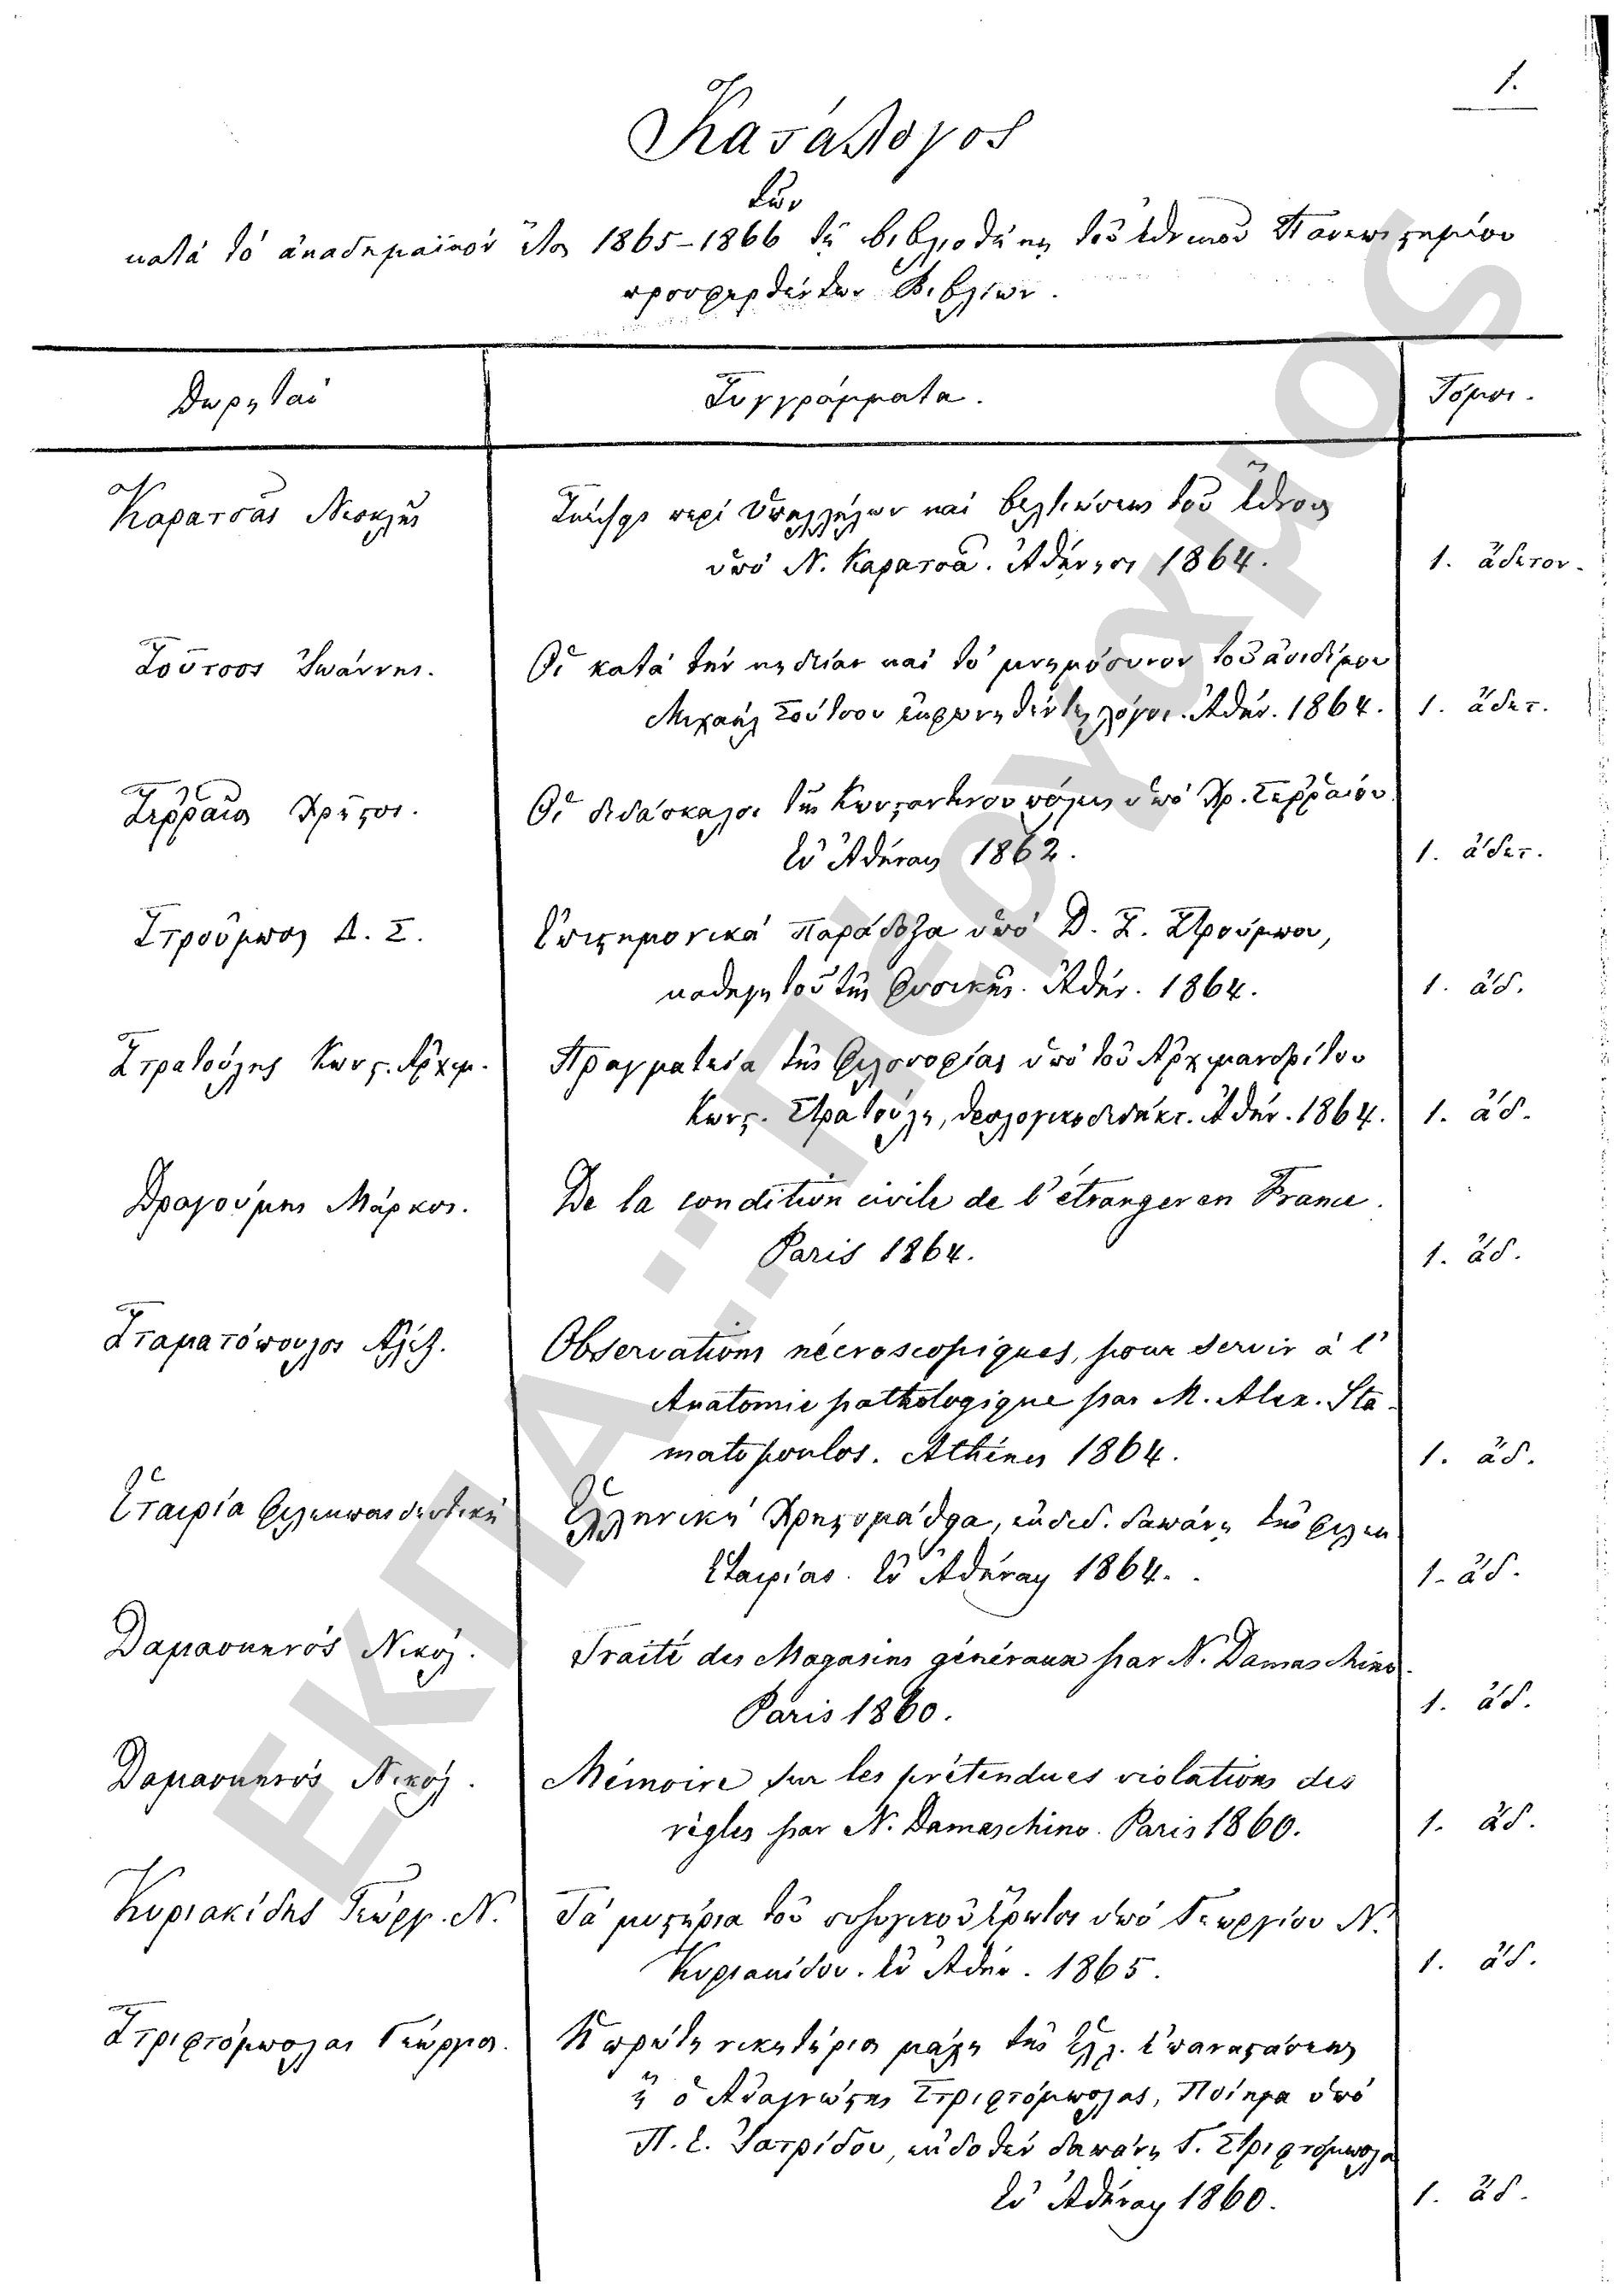 1.
Κατάλογος
τῶν
κατὰ τὸ ἀκαδημαϊκὸν ἔτος 1865-1866 τῇ βιβλιοθήκῃ τοῦ ἐθνικοῦ Πανεπιστημίου
προσφερθέντων Βιβλίων.
Δωρηταὶ Συγγράμματα. Τόμοι.
Καρατσᾶς Νεοκλῆς Σκέψεις περὶ ὑπαλλήλων καὶ βελτιώσεως τοῦ ἔθνους
ὑπὸ Ν. Καρατσᾶ. Ἀθήνησι 1864. 1. ἄδετον.
Σοῦτσος Ἰωάννης. Οἱ κατὰ τὴν κηδείαν καὶ τὸ μνημόσυνον τοῦ ἀοιδίμου
Μιχαὴλ Σούτσου ἐκφωνηθέντες λόγοι. Ἀθήν. 1864. 1. ἄδετ.
Σεῤῥαῖος Χρῆστος. Οἱ διδάσκαλοι τῆς Κωνσταντινουπόλεως ὑπὸ Χρ. Σεῤῥαίου
ἐν Ἀθήναις 1862. 1. ἄδετ.
Στροῦμπος Δ. Σ. Ἐπιστημονικὰ Παράδοξα ὑπὸ Δ. Σ. Στρούμπου,
καθηγητοῦ τῆς Φυσικῆς. Ἀθήν. 1864. 1. ἄδ.
Στρατούλης Κωνστ. Ἀρχιμ. Πραγματεία τῆς Φιλοσοφίας ὑπὸ τοῦ Ἀρχιμανδρίτου
Κωνστ. Στρατούλη, θεολογικοδιδάκτ. Ἀθήν. 1864. 1. ἄδ.
Δραγούμης Μάρκος. De la condition civile de l'étranger en France.
Paris 1864. 1. ἄδ.
Σταματόπουλος Ἀλέξ. Observations nécroscopiques, pour servir à l'
Anatomie pathologique par M. Alex. Sta-
matopoulos. Athènes 1864. 1. ἄδ.
Ἑταιρία Φιλεκπαιδευτικὴ Ἑλληνικὴ Χρηστομάθεια, ἐκδοθ. δαπάνῃ τῆς Φιλεκ
Ἑταιρίας. ἐν Ἀθήναις 1864. 1. ἄδ.
Δαμασκηνὸς Νικόλ. Traité des Magasins généraux par N. Damaschino.
Paris 1860. 1. ἄδ.
Δαμασκηνὸς Νικόλ. Mémoire sur les prétendues violations des
règles par N. Damaschino. Paris 1860. 1. ἄδ.
Κυριακίδης Γεώργ. Ν. Τὰ μυστήρια τοῦ συζυγικοῦ ἔρωτος ὑπὸ Γεωργίου Ν.
Κυριακίδου. ἐν Ἀθήν. 1865. 1. ἄδ.
Στριφτόμπολας Γεώργιος. Ἡ πρώτη νικητήριος μάχη τῆς Ἑλλ. Ἐπαναστάσεως
ἢ ὁ Ἀναγνώστης Στριφτόμπολας, Ποίημα ὑπὸ
Π. Σ. Ἰατρίδου, ἐκδοθὲν δαπάνῃ Γ. Στριφτόμπολα
ἐν Ἀθήναις 1860. 1. ἄδ.
ΕΚΠΑ...: Πέργαμος